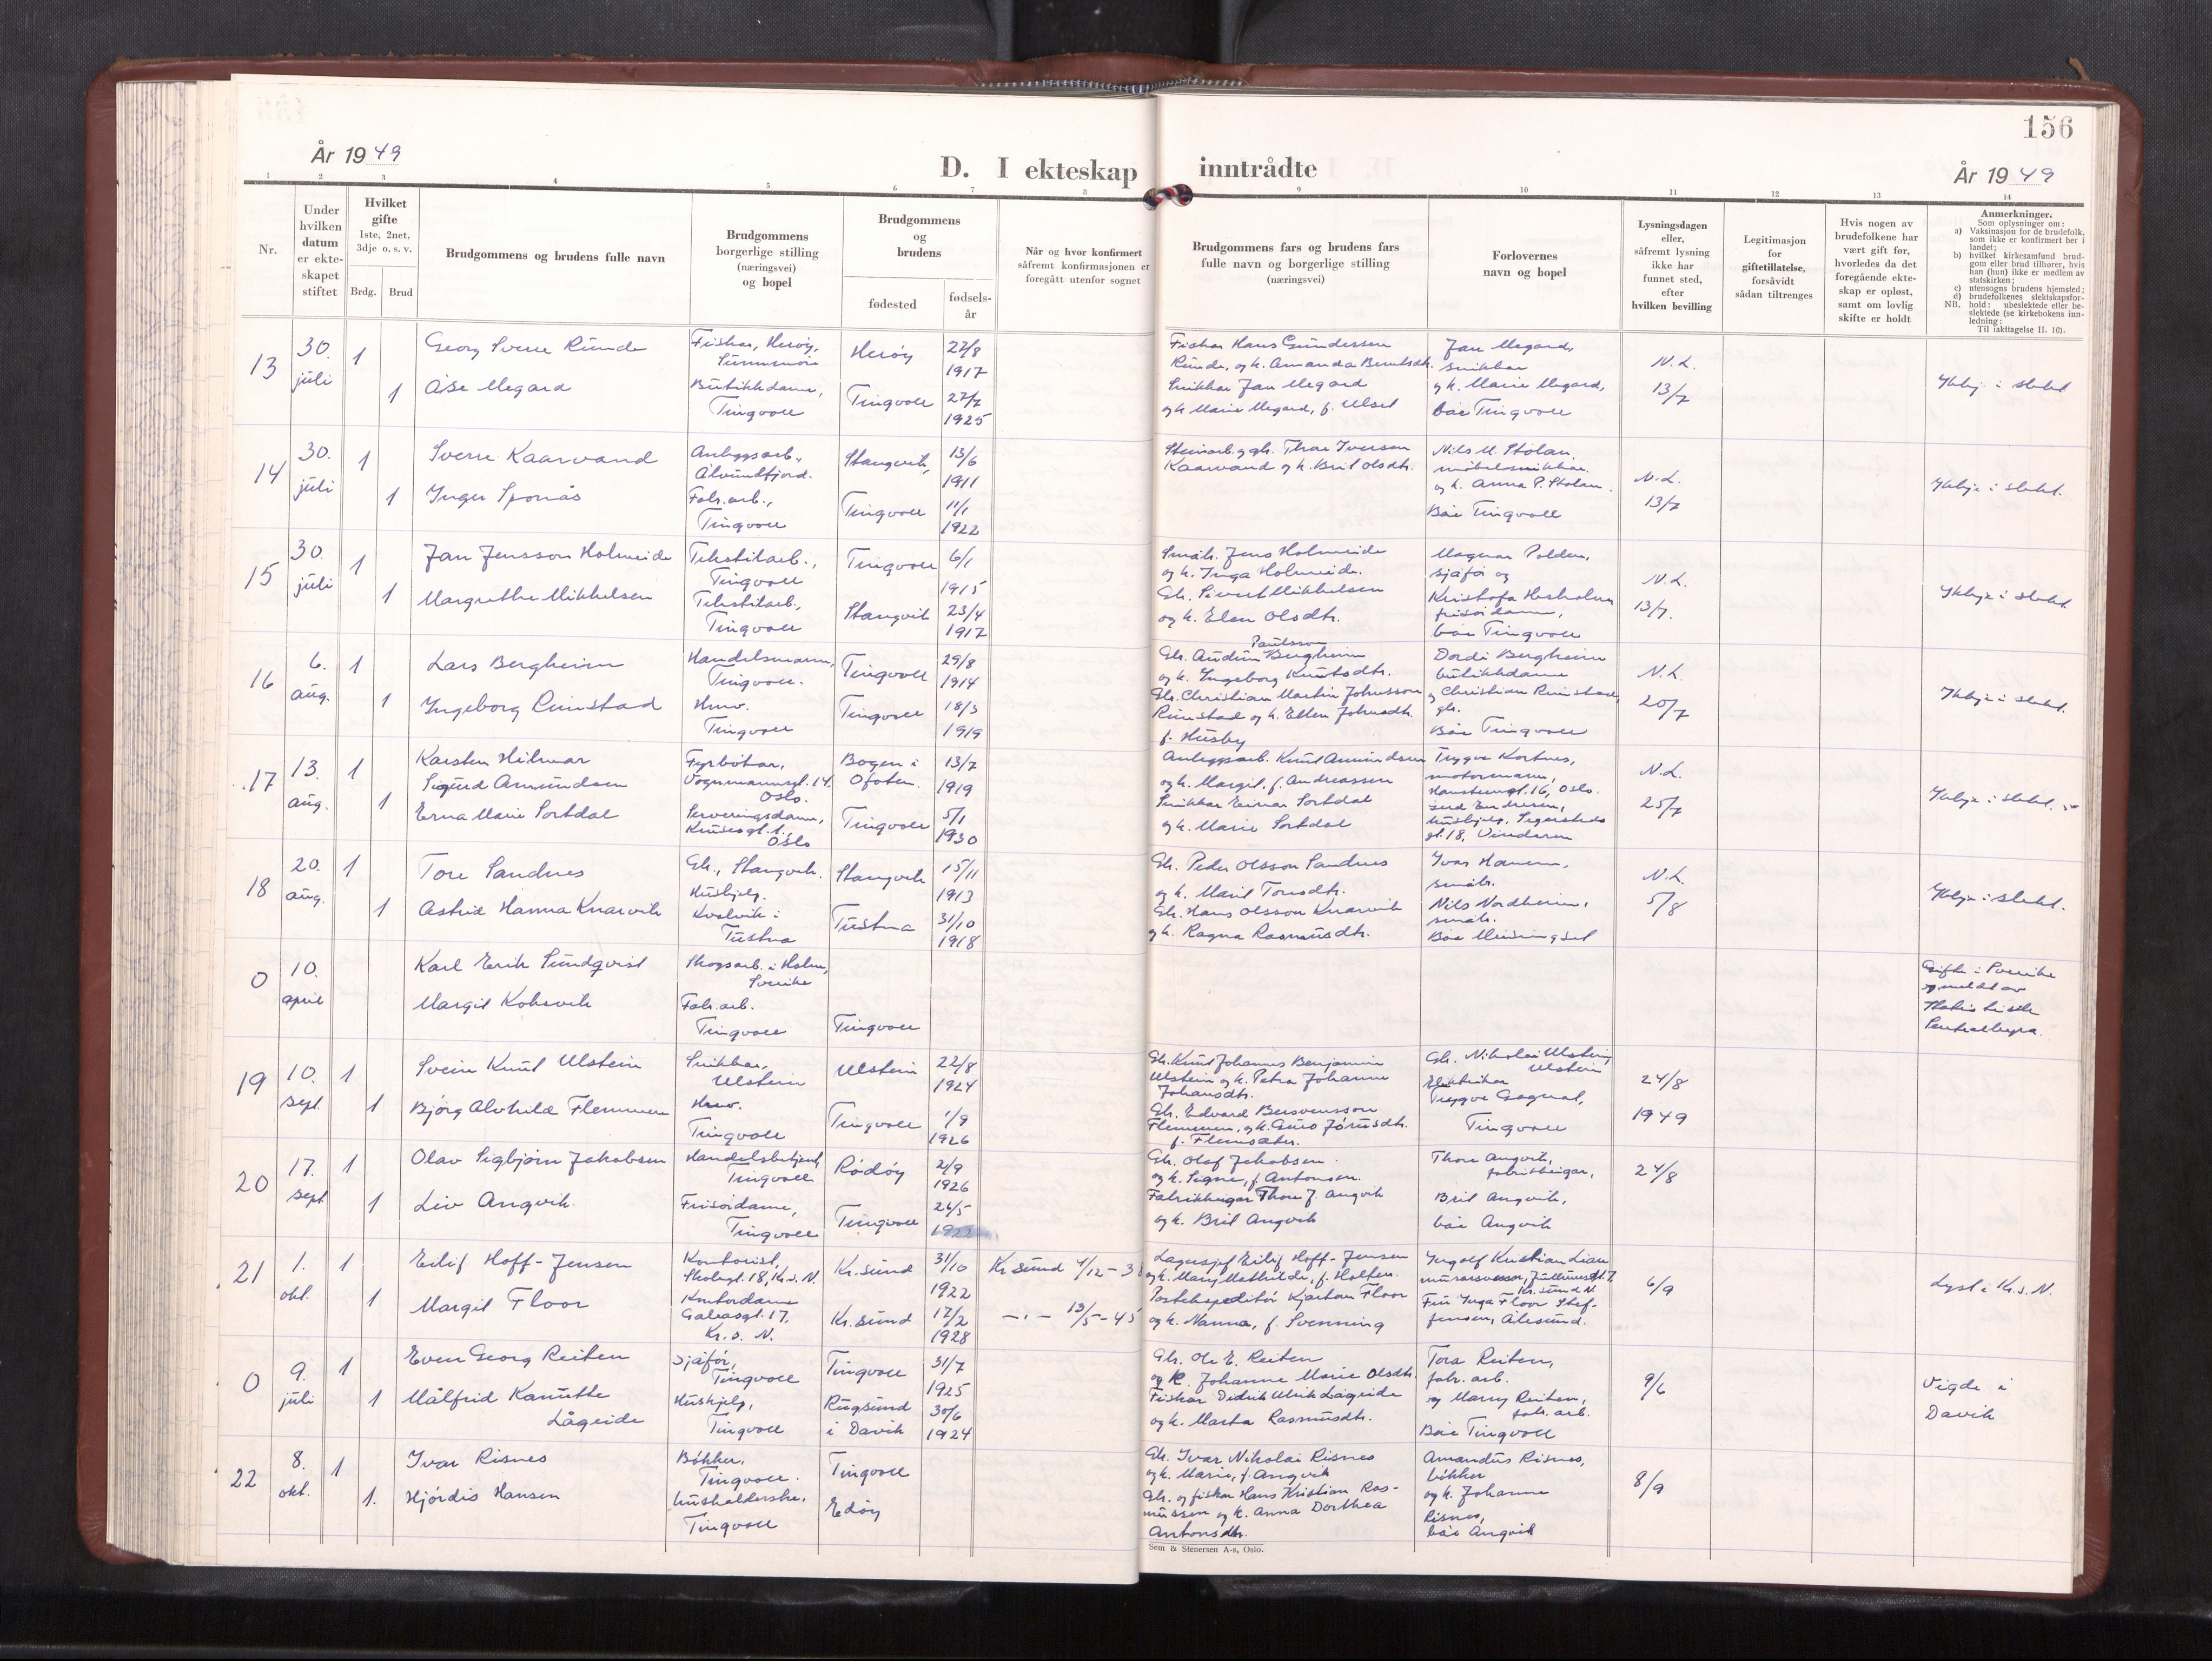 156
År 1949
D. I ekteskap inntrådte
År 1949
1 2 3 4 5 6 7 8 9 10 11 12 13 14
Nr.
Under hvilken datum er ekteskapet stiftet
Hvilket gifte 1ste, 2net, 3dje o. s. v.
Brdg. Brud
Brudgommens og brudens fulle navn
Brudgommens borgerlige stilling (næringsvei) og bopel
Brudgommens og brudens
fødested
fødsels-år
Når og hvor konfirmert såfremt konfirmasjonen er foregått utenfor sognet
Brudgommens fars og brudens fars fulle navn og borgerlige stilling (næringsvei)
Forlovernes navn og bopel
Lysningsdagen eller, såfremt lysning ikke har funnet sted, efter hvilken bevilling
Legitimasjon for giftetillatelse, forsåvidt sådan tiltrenges
Hvis nogen av brudefolkene har vært gift før, hvorledes da det foregående ekteskap er opløst, samt om lovlig skifte er holdt
Anmerkninger.
Som oplysninger om:
a) Vaksinasjon for de brudefolk, som ikke er konfirmert her i landet;
b) hvilket kirkesamfund brudgom eller brud tilhører, hvis han (hun) ikke er medlem av statskirken;
c) utensogns brudens hjemsted;
d) brudefolkenes slektskapsforhold: ubeslektede eller beslektede (se kirkebokens innledning:
NB. Til iakttagelse II. 10).
13 30. juli 1 Georg Sverre Runde Fiskar, Herøy, Sunnmøre Herøy 27/8 1917 Fiskar Hans Gundersen Runde, og k. Amanda Berntsdtr. Jan Megard, snikkar N.L. Ikkje i slekt
1 Åse Megard Butikkdame, Tingvoll Tingvoll 27/7 1925 Snikkar Jan Megard og k. Marie Megard, f. Ulset og k. Marie Megard, båe Tingvoll 13/7
14 30. juli 1 Sverre Kaarvand Anleggsarb., Ålvundfjord. Stangvik, 13/6 1911 Steinarb. og gbr. Thore Iversen Kaarvand og k. Brit Olsdtr. Nils M. Stolan, møbelsnikkar. N.L. Ikkje i slekt.
1 Inger Sponås Fabr.arb., Tingvoll Tingvoll 11/1 1922 og k. Anna P. Stolan. Båe Tingvoll 13/7
15 30. juli 1 Jan Jensson Holmeide Tekstilarb., Tingvoll Tingvoll 6/1 1915 Småbr. Jens Holmeide og k. Inga Holmeide. Magnar Polden, sjåfør og N.L. Ikkje i slekt
1 Margrethe Mikkelsen Tekstilarb., Tingvoll Stangvik 23/4 1917 Gbr. Sivert Mikkelsen og k. Elen Olsdtr. Kristofa frisørdame, båe Tingvoll 13/7.
16 6. aug. 1 Lars Bergheim Handelsmann, Tingvoll. Tingvoll 29/8 1914 Gbr. Audun Paulsson Bergheim og k. Ingeborg Knutsdtr. Dordi Bergheim butikkdame N.L. Ikkje i slekt.
1 Ingeborg Rimstad Hmv. Tingvoll Tingvoll 18/3 1919 Gbr. Christian Martin Johnsson Rimstad og k. Ellen Johnsdtr. f. Husby og Christian Rimstad, gbr. Båe Tingvoll 20/7
17 13. aug. 1 Karsten Hilmar Sigurd Amundsen Fyrbøtar, Vognmannsgt. 14, Oslo. Bogen i Ofoten. 13/7 1919 Anleggsarb. Knut Amundsen og k. Margit, f. Andreassen Trygve Kortnes, motormann, Hausmannsgt. 16, Oslo. N.L. Ikkje i slekt.
1 Erna Marie Sortdal Serveringsdame, Krusesgt. 1, Oslo Tingvoll 5/1 1930 Snikkar Einar Sortdal og k. Marie Sortdal Gerd Endresen, hushjelp, Segerstedsgt. 18, Vinderen 25/7
18 20. aug. 1 Tore Sandnes Gbr., Stangvik. Stangvik 15/11 1913 Gbr. Peder Olsson Sandnes og k. Marit Toresdtr. Ivar Hamnes, småbr. N.L. Ikkje i slekt.
1 Astrid Hanna Knarvik Hushjelp. Kvalvik i Tustna Tustna 31/10 1918 Gbr. Hans Olsson Knarvik og k. Ragna Rasmusdtr. Nils Nordheim, småbr. Båe Meisingset 5/8
0 10. april Karl Erik Sundqvist Skogsarb. i Holm, Sverike
Margit Koksvik Fabr.arb. Tingvoll Tingvoll Gifte i Sverike og meldt av Statistisk Sentralbyrå.
19 10. sept. 1 Svein Knut Ulstein Snikkar, Ulstein Ulstein 22/8 1924 Gbr. Knut Johannes Benjamin Ulstein og k. Petra Johanne Johansdtr. Gbr. Nikolai Ulstein, Ulstein 24/8
1 Bjørg Alvhild Flemmen Hmv. Tingvoll Tingvoll 1/9 1926 Gbr. Edvard Bersvensson Flemmen, og k. Guro Jørusdtr. f. Flemsæter. Elektriker Trygve Gagnat, Tingvoll 1949
20 17. sept 1 Olav Sigbjørn Jakobsen Handelsbetjent, Tingvoll Rødøy 2/9 1926 Gbr. Olaf Jakobsen og k. Signe, f. Antonsen. Thore Angvik, fabrikkeigar, 24/8
1 Liv Angvik Frisørdame, Tingvoll Tingvoll 26/5 Fabrikkeigar Thore J. Angvik og k. Brit Angvik Brit Angvik, båe Angvik
21 1. okt. 1 Eilif Hoff-Jensen Kontorist, Skolegt. 18, Kr.s. N. Kr.sund 31/10 1922 Kr.sund 4/12-3 Lagersjef Eilif Hoff-Jensen og k. Mary Mathilde, f. Holten. Ingolf Kristian Lian murarsvenn, Kr.sund N. 6/9 Lyst i Kr.s. N.
1 Margit Floor Kontordame Galeasgt. 17, Kr. s. N. Kr.sund 17/2 1928 -"- 13/5-45 Postekspeditør Kjartan Floor og k. Nanna, f. Svenning Fru Inga Floor Steffensen, Ålesund.
0 9. juli 1 Even Georg Reiten Sjåfør, Tingvoll Tingvoll 31/7 1925 Gbr. Ole E. Reiten og k. Johanne Marie Olsdtr. Tora Reiten, fabr. arb. 9/6 Vigde i Davik
1 Målfrid Kanutte Lågeide Hushjelp, Tingvoll Rugsund i Davik 30/6 1924 Fiskar Didrik Ulrik Lågeide og k. Marta Rasmusdtr. og Marry Reiten, fabr. arb. Båe Tingvoll
22 8. okt. 1 Ivar Risnes Bøkker, Tingvoll. Tingvoll Gbr. Ivar Nikolai Risnes og k. Marie, f. Angvik Amandus Risnes, bøkker 8/9
1. Hjørdis Hansen Husholderske, Tingvoll Edøy Gbr. og fiskar Hans Kristian Rasmussen og k. Anna Dorthea Antonsdtr. og k. Johanne Risnes, båe Angvik
Sem & Stenersen A-s, Oslo.